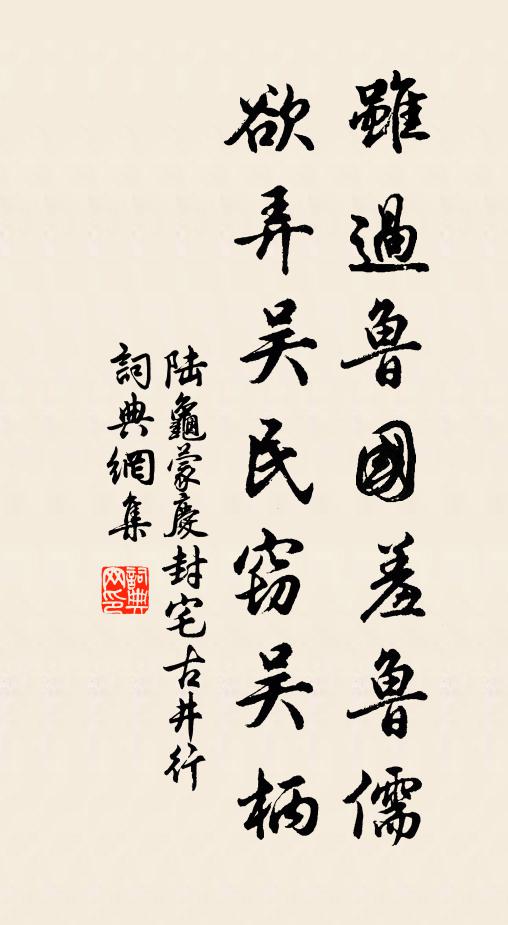 雖過魯國羞魯儒
欲弄吳民竊吳柄
陸龜蒙慶封宅古井行
詞典網集
詞典網印